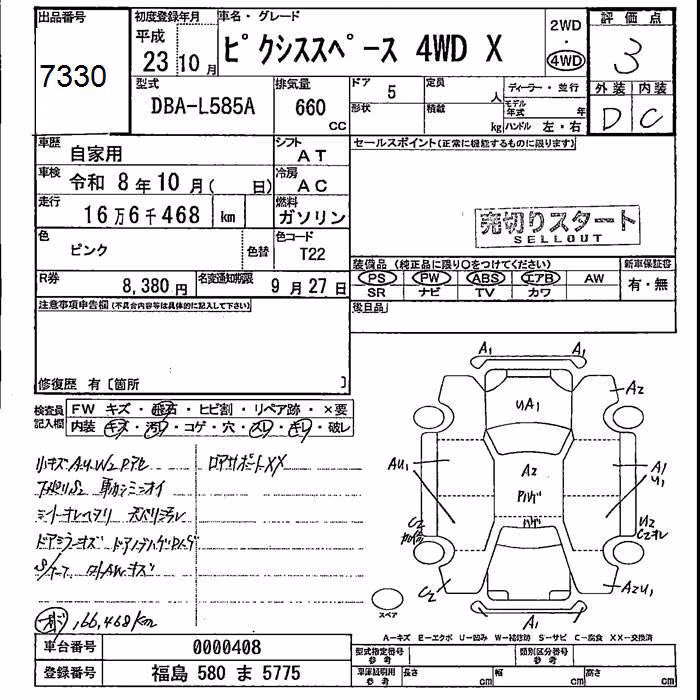 出品番号
7330
初度登録年月
平成
23 10 月
車名・グレード
ピクシススペース 4WD X
2WD
・
4WD
評価点
3
外装 内装
D C
型式
DBA-L585A
排気量
660
CC
ドア
5
定員
人
形状
積載
kg
ディーラー・並行
モデル
年式
年
ハンドル 左・右
車歴
自家用
シフト
AT
車検
令和 8年10月( 日)
冷房
AC
走行
16万6千468 km
燃料
ガソリン
色
ピンク
色替
色コード
T22
R券
8,380円
名変通知期限
9月27日
セールスポイント(正常に機能するものに限ります)
売切りスタート
SELLOUT
装備品 (純正品に限り○をつけてください)
新車保証書
PS PW ABS エアB AW
有・無
SR ナビ TV カワ
後日品
注意事項申告欄(不具合内容等は具体的に記入して下さい)
修復歴 有〔箇所 〕
検査員
記入欄
FW キズ・飛石・ヒビ割・リペア跡・×要
内装 キズ・汚れ・コゲ・穴・スレ・キレ・破レ
小キズ A.U.W2
ロアサポートXX
下廻りS2
シートコレヘタリ
ドアミラーキズ
AWキズ
166,468km
A1
A2
UA1
AU1
A2
A1
U1
U2
C2
C2
A2U1
A1
スペア
A-キズ E-エクボ U-凹み W-補修跡 S-サビ C-腐食 XX-交換済
車台番号
0000408
登録番号
福島 580 ま 5775
型式指定番号
参考
類別区分番号
参考
車庫証明用
参考
長さ
cm
幅
cm
高さ
cm